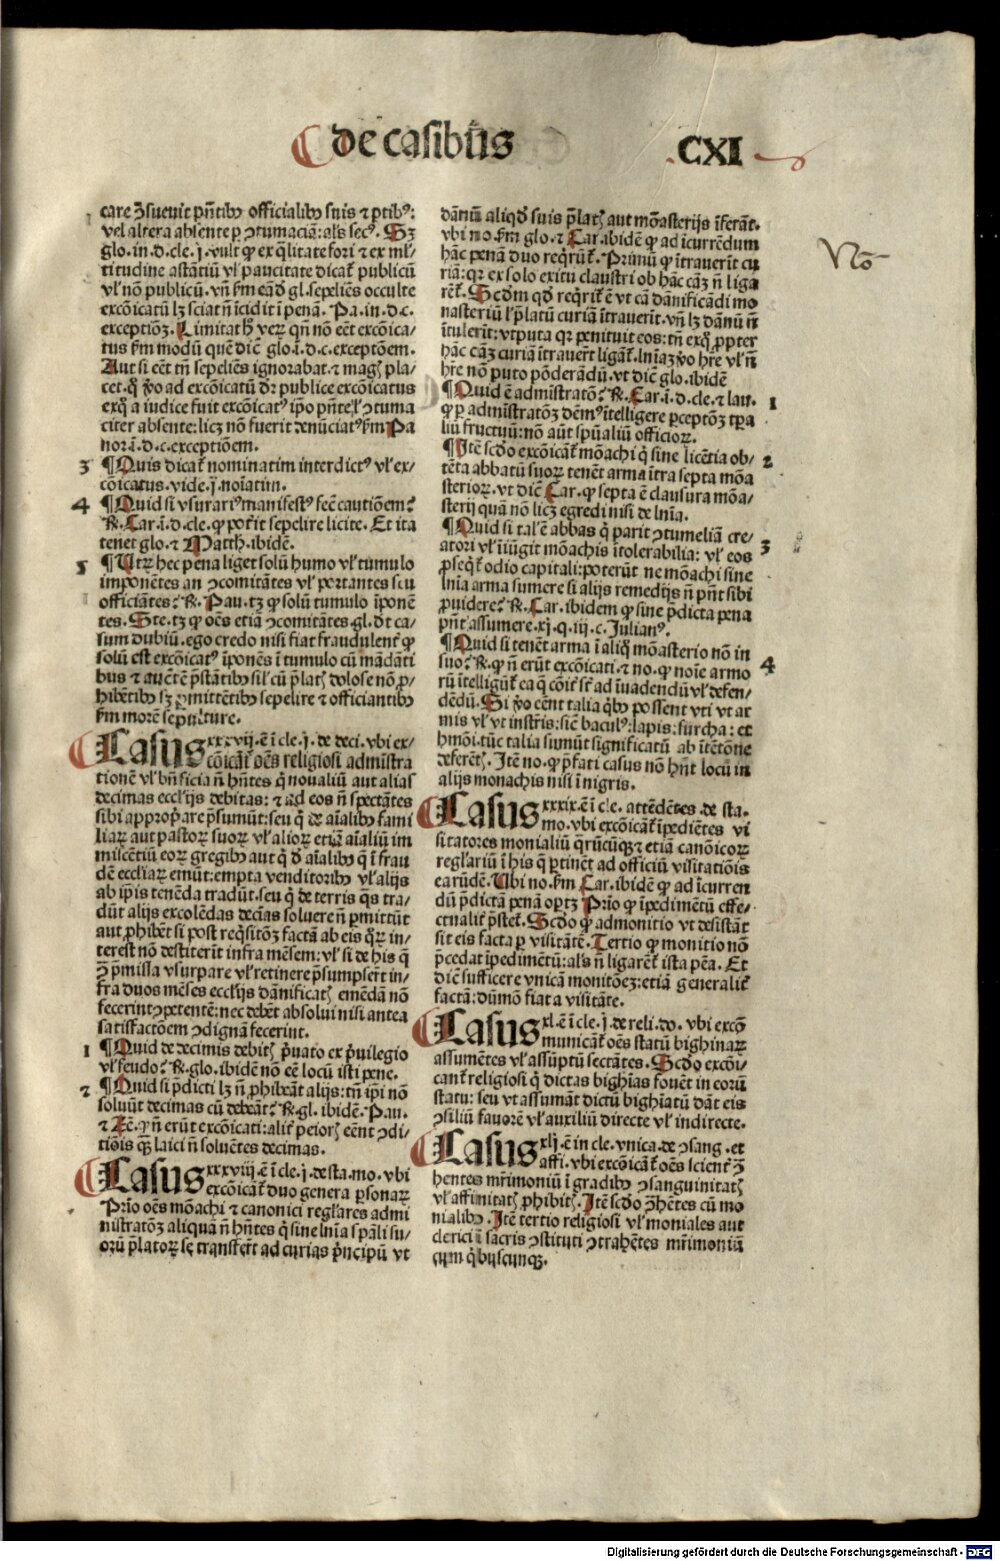 de casibūs
CXI
care ꝯsueuit p̄ntibꝰ officialibꝰ suis ⁊ ꝑtibꝰ:
vel altera absente ꝑ ↄtumaciā: al's secꝰ. Sꝫ
glo. in. d. cle. j. vult ꝙ ex q̄litate fori ⁊ ex ml̄
titudine astātiū vl' paucitate dicat᷑ publicū
vl' nō publicū. vn̄ ẜm eād̄ gl. sepeliēs occulte
excōicatū lꝫ sciat n̄ īcidit ī penā. Pa. in. d. c.
exceptiōꝫ. Limitat hꝭ veꝝ qn̄ nō eēt excōica/
tus ẜm modū quē dic̄ glo. ī. d. c. exceptōem.
Aut si eēt tn̄ sepeliēs ignorabat. ⁊ magꝭ pla/
cet. q̄ ꝟo ad excōicatū dr̄ publice excōicatus
exq̄ a iudice fuit excōicatꝰ ip̄o p̄nte vl' ↄtuma
citer absente: licꝫ nō fuerit denūciatꝰ ẜm Pa
norā. d. c. exceptiōem.
3 ¶ Quis dicat᷑ nominatim interdictꝰ vl' ex/
cōicatus. vide. j. noīatim.
4 ¶ Quid si vsurariꝰ manifestꝰ fec̄ cautiōem?
℟. Car. ī. d. cle. ꝙ pot̄it sepelire licite. Et ita
tenet glo. ⁊ Matth. ibidē.
5 ¶ Utꝝ hec pena liget solū humo vl' tumulo
imponētes an ↄcomitātes vl' portantes seu
officiātes? ℟. Pau. tꝫ ꝙ solū tumulo īponē
tes. Ste. tꝫ ꝙ oēs etiā ↄcomitātes. gl. dt̄ ca/
sum dubiū. ego credo nisi fiat fraudulent᷑ ꝙ
solū est excōicatꝰ īponēs ī tumulo cū mādāti
bus ⁊ auctē p̄stātibꝰ sil' cū p̄latꝭ dolose nō ꝓ/
hibētibꝰ sꝫ ꝑmittētibꝰ sepelire ⁊ officiantibꝰ
ẜm morē sepulture.
Casus xxxvij. ē ī cle. j. de deci. vbi ex/
cōicāt᷑ oēs religiosi admīstra
tionē vl' bn̄ficia n̄ hn̄tes q̄ noualiū aut alias
decimas eccl'ijs debitas: ⁊ ad eos n̄ spectātes
sibi approp̄are p̄sumūt: seu q̄ de aīalibꝰ fami
liaꝝ aut pastoꝝ suoꝝ vl' alioꝝ etiā aīaliū im
miscētiū eoꝝ gregibꝰ aut q̄ d̄ aīalibꝰ q̄ ī frau
dē eccl'iaꝝ emūt: empta venditoribꝰ vl' alijs
ab ip̄is tenēda tradūt. seu q̄ de terris qs tra/
dūt alijs excolēdas decīas soluere n̄ ꝑmittūt
aut ꝓhibēt si post reqs̄itōꝫ factā ab eis q̄ꝝ in/
terest nō destiterīt infra mēsem: vl' si de his q̄
ꝯ p̄missa vsurpare vl' retinere p̄sumpser̄t in/
fra duos mēses eccl'ijs dānificatꝭ emēdā nō
fecerint ↄpetentē: nec debēt absolui nisi antea
satisfactōem ↄdignā fecerint.
1 ¶ Quid de decimis debitꝭ p̄uato ex p̄uilegio
vl' feudo? ℟. glo. ibidē nō eē locū isti pene.
2 ¶ Quid si p̄dicti lꝫ n̄ ꝓhibeāt alijs: tn̄ ip̄i nō
soluūt decimas cū debeāt? ℟. gl. ibidē. Pau.
⁊ Ze. ꝙ n̄ erūt excōicati: alit᷑ peiorꝭ eēnt ↄdi/
tiōis qꝫ laici n̄ soluētes decimas.
Casus xxxviij. ē ī cle. j. de sta. mo. vbi
excōicāt᷑ duo genera ꝑsonaꝝ
Prīo oēs mōachi ⁊ canonici regl'ares admi
nistratōꝫ aliquā n̄ hn̄tes q̄ sine lnīa sp̄ali su/
orū p̄latoꝝ se transfer̄t ad curias p̄ncipū vt
dānū aliqd̄ suis p̄latꝭ aut mōasterijs īferāt.
vbi no. ẜm glo. ⁊ Car. ibidē ꝙ ad īcurrēdum
hāc penā duo reqr̄ūt᷑. Primū ꝙ ītrauerīt cu
riā: qꝛ ex solo exitu claustri ob hāc cāꝫ n̄ liga
rēt᷑. Scd̄m qd̄ reqrit᷑ ē vt cā dānificādi mo
nasteriū vl' p̄latū curiā ītrauerīt. vn̄ lꝫ dānū n̄
ītulerīt: vtputa qꝛ penituit eos: tn̄ exq̄ ꝓpter
hāc cāꝫ curiā ītrauer̄t ligāt᷑. lnīaꝫ ꝟo hr̄e vl' n̄
hr̄e nō puto pōderādū. vt dic̄ glo. ibidē
¶ Quid ē administratō? ℟. Car. ī. d. cle. ⁊ lau. 1
ꝙ ꝑ adminīstratōꝫ dēmꝰ ītelligere ꝑceptōꝫ tꝑa
liū fructuū: nō aūt spūaliū officioꝝ.
¶ Itē scd̄o excōicāt᷑ mōachi q̄ sine licētia ob/ 2
tēta abbatū suoꝝ tenēt arma ītra septa mōa
sterioꝝ. vt dic̄ Car. ꝙ septa ē clausura mōa/
sterij quā nō licꝫ egredi nisi de lnīa.
¶ Quid si tal' ē abbas q̄ parit ↄtumeliā cre/ 3
atori vl' īiūgit mōachis ītolerabilia: vl' eos
ꝓseq̄t᷑ odio capitali: poterūt ne mōachi sine
lnīa arma sumere si alijs remedijs n̄ pn̄t sibi
ꝓuidere? ℟. Car. ibidem ꝙ sine p̄dicta pena
pn̄t assumere. xj. q. iij. c. Julianꝰ.
¶ Quid si tenēt arma ī aliq̄ mōasterio nō in 4
suo? ℟. ꝙ n̄ erūt excōicati. ⁊ no. ꝙ noīe armo
rū ītelligūt᷑ ea q̄ cōit᷑ sūt ad īuadendū vl' defen/
dēdū. Si ꝟo eēnt talia q̄bꝰ possent vti vt ar
mis vl' vt instr̄is: sic̄ baculꝰ: lapis: furcha: et
hmōi. tūc talia sumūt significatū ab ītētōne
deferētꝭ. Itē no. ꝙ p̄fati casus nō hn̄t locū in
alijs monachis nisi ī nigris.
Casus xxxix. ē ī cle. attēdētes. de sta.
mo. vbi excōicāt᷑ īpediētes vi
sitatores monialiū qr̄ūcūqꝫ ⁊ etiā canōicoꝝ
regl'ariū ī his q̄ ꝑtinēt ad officiū visitatiōis
earūdē. Ubi no. ẜm Car. ibidē ꝙ ad īcurren
dū p̄dictā penā oꝑtꝫ Prīo ꝙ īpedimētū effe/
ctualit᷑ p̄stet᷑. Scd̄o ꝙ admonitio vt desistāt
sit eis facta ꝑ visitātē. Tertio ꝙ monitio nō
p̄cedat īpedimētū: al's n̄ ligarēt᷑ ista pēa. Et
dic̄ sufficere vnicā monitōeꝫ: etiā generalit᷑
factā: dūmō fiat a visitāte.
Casus xl. ē ī cle. j. de reli. do. vbi excō
municāt᷑ oēs statū bighinaꝝ
assumētes vl' assūptū sectātes. Scd̄o excōi/
cant᷑ religiosi q̄ dictas bighīas fouēt in eorū
statu: seu vt assumāt dictū bighīatū dāt eis
ↄsiliū fauorē vl' auxiliū directe vl' indirecte.
Casus xlj. ē in cle. vnica. de ↄsang. et
affi. vbi excōicāt᷑ oēs scient᷑ ꝯ
hentes mr̄imoniū ī gradibꝰ ↄsanguinitatꝭ
vl' affinitatꝭ ꝓhibitꝭ. Itē scd̄o ꝯhētes cū mo
nialibꝰ. Itē tertio religiosi vl' moniales aut
clerici ī sacris ↄstituti ↄtrahētes mr̄imoniū
cum q̄buscunqꝫ.
Nō
Digitalisierung gefördert durch die Deutsche Forschungsgemeinschaft - DFG